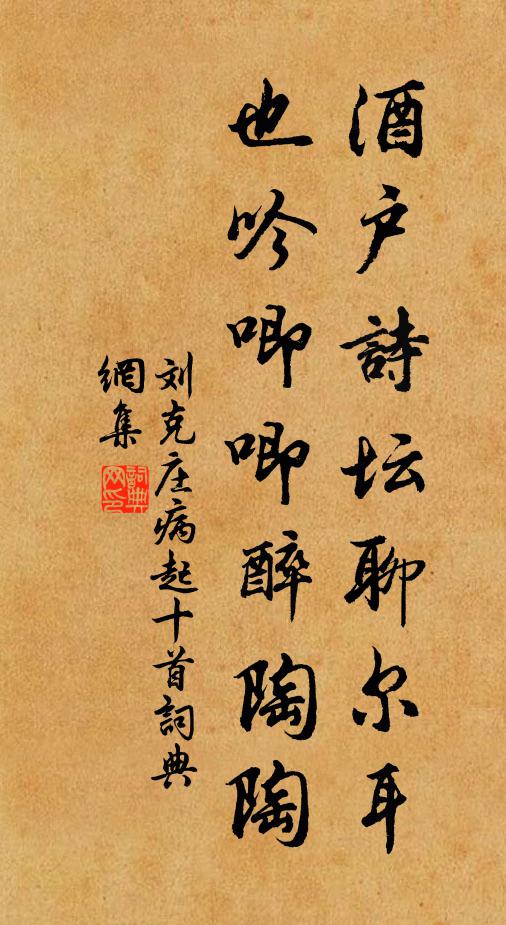 酒户詩坛聊尔耳
也吟唧唧醉陶陶
刘克庄病起十首詞典
網集
詞典网印